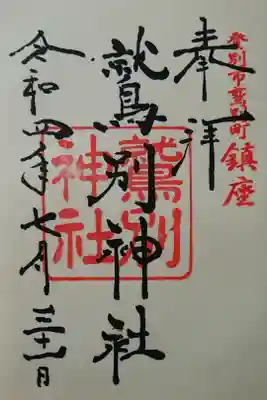 登別市鷲別町鎮座
奉拝
鷲別神社
鷲別
神社
令和四年七月三十一日